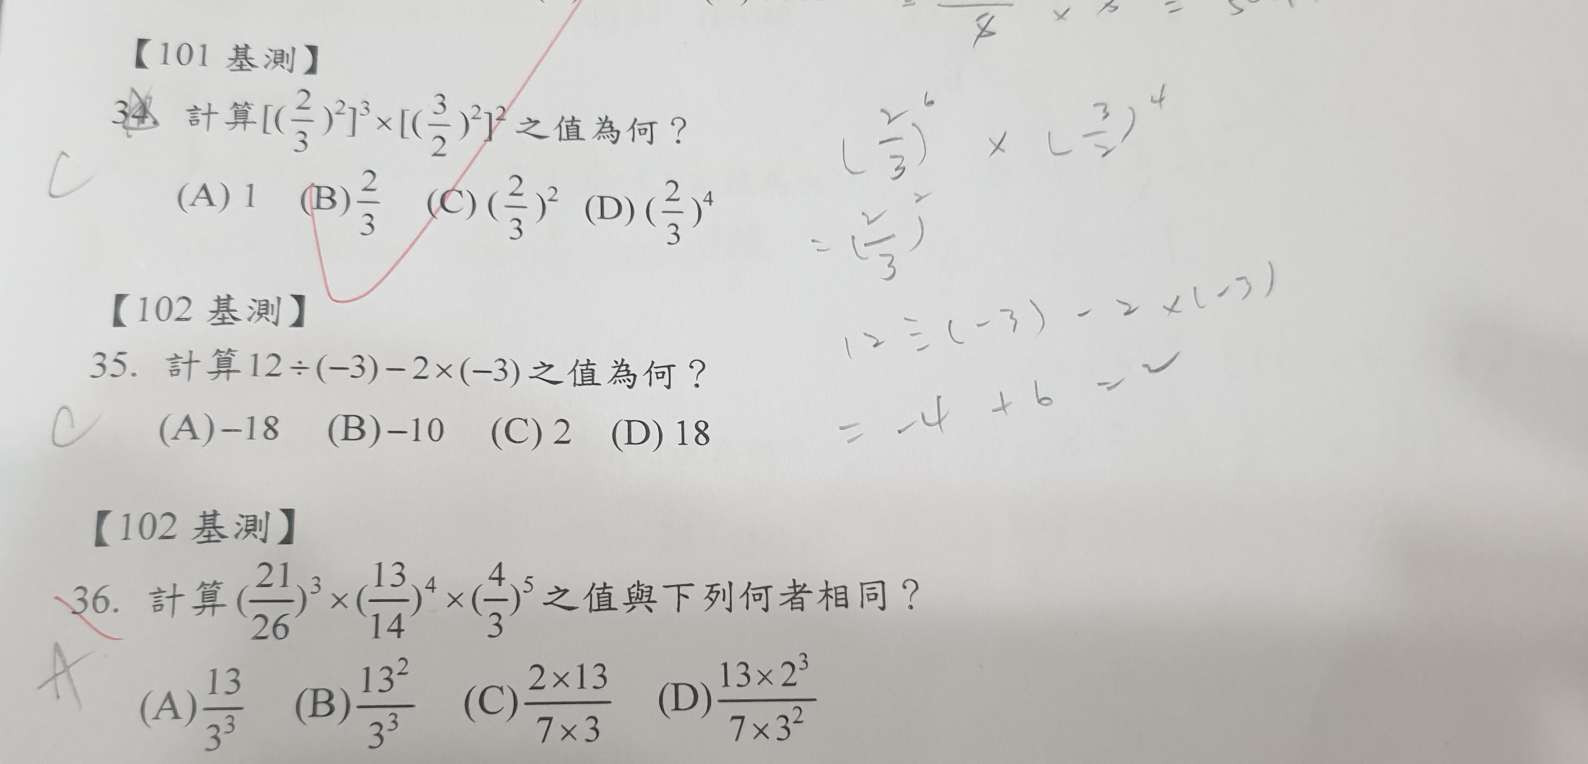 【101 基測】
34. 計算[(2/3)²]³×[(3/2)²]²之值為何？
C
(A) 1 (B) 2/3 (C) (2/3)² (D) (2/3)⁴
(2/3)⁶ × (3/2)⁴
= (2/3)²
【102 基測】
35. 計算12÷(−3)−2×(−3)之值為何？
C
(A)−18 (B)−10 (C) 2 (D) 18
12÷(−3)−2×(−3)
= −4 + 6 = 2
【102 基測】
36. 計算(21/26)³×(13/14)⁴×(4/3)⁵之值與下列何者相同？
A
(A) 13/3³ (B) 13²/3³ (C) 2×13/7×3 (D) 13×2³/7×3²